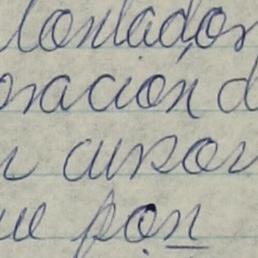 Contador
oración d
cursor
ue pon